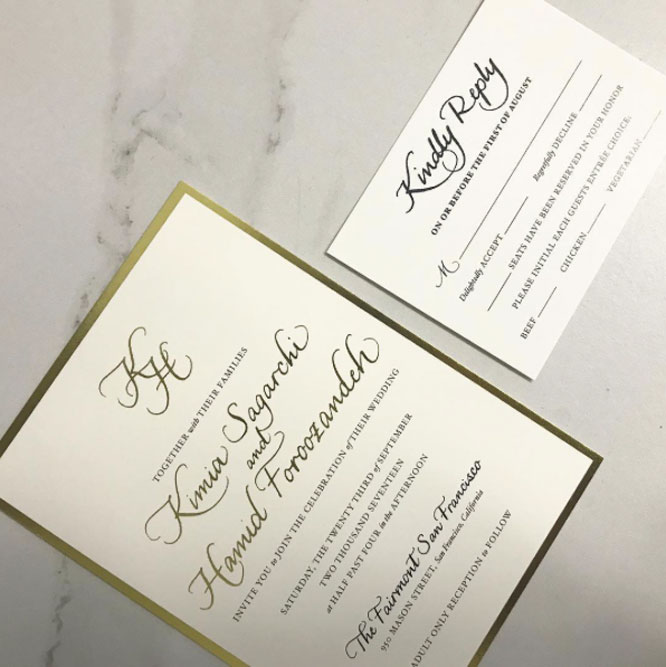 KH
TOGETHER with THEIR FAMILIES
Kimia Sagarchi
and
Hamid Foroozandeh
INVITE YOU to JOIN THE CELEBRATION of THEIR WEDDING
SATURDAY, THE TWENTY THIRD of SEPTEMBER
TWO THOUSAND SEVENTEEN
at HALF PAST FOUR in the AFTERNOON
The Fairmont San Francisco
950 MASON STREET, San Francisco, California
ADULT ONLY RECEPTION to FOLLOW
Kindly Reply
ON OR BEFORE THE FIRST OF AUGUST
M
Delightfully ACCEPT Regretfully DECLINE
SEATS HAVE BEEN RESERVED IN YOUR HONOR
PLEASE INITIAL EACH GUESTS ENTRÉE CHOICE,
BEEF CHICKEN VEGETARIAN